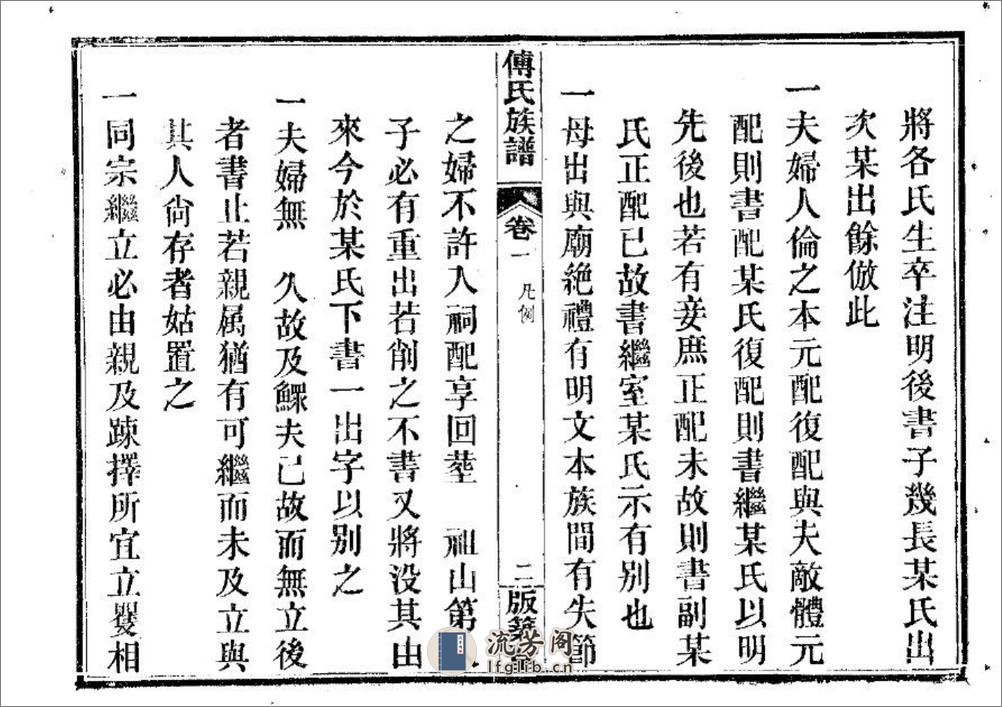 將各氏生卒注明後書子幾長某氏出
次某出餘倣此
一夫婦人倫之本元配復配與夫敵體元
配則書配某氏復配則書繼某氏以明
先後也若有妾庶正配未故則書副某
氏正配已故書繼室某氏示有别也
一母出與廟絶禮有明文本族間有失節
傅氏族譜 卷一 凡例 二 版築
之婦不許入祠配享回塟 祖山第
子必有重出若削之不書又將没其由
來今於某氏下書一出字以别之
一夫婦無 久故及鰥夫已故而無立後
者書止若親属猶有可繼而未及立與
其人尙存者姑置之
一同宗繼立必由親及踈擇所宜立嬰相
流芳阁
lfglib.cn